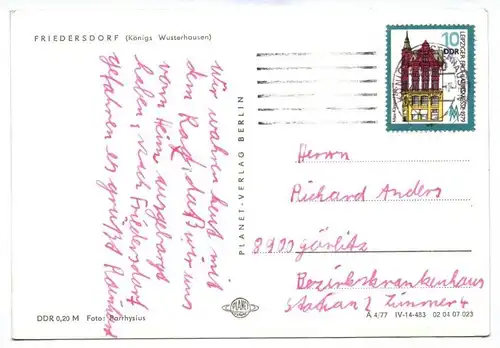 FRIEDERSDORF (Königs Wusterhausen)
Wir wahren heut mit
dem Rad, daß wir uns
vom Heim ausgeborgt
haben, nach Friedersdorf
gefahren es grüßt
PLANET-VERLAG BERLIN
10
DDR
LEIPZIGER FRÜHJAHRSMESSE 1979
Herrn
Richard Anders
8900 Görlitz
Bezirkskrankenhaus
Station 2 Zimmer 4
PLANET
DDR 0,20 M Foto: Parrhysius
A 4/77 IV-14-483 02 04 07 023